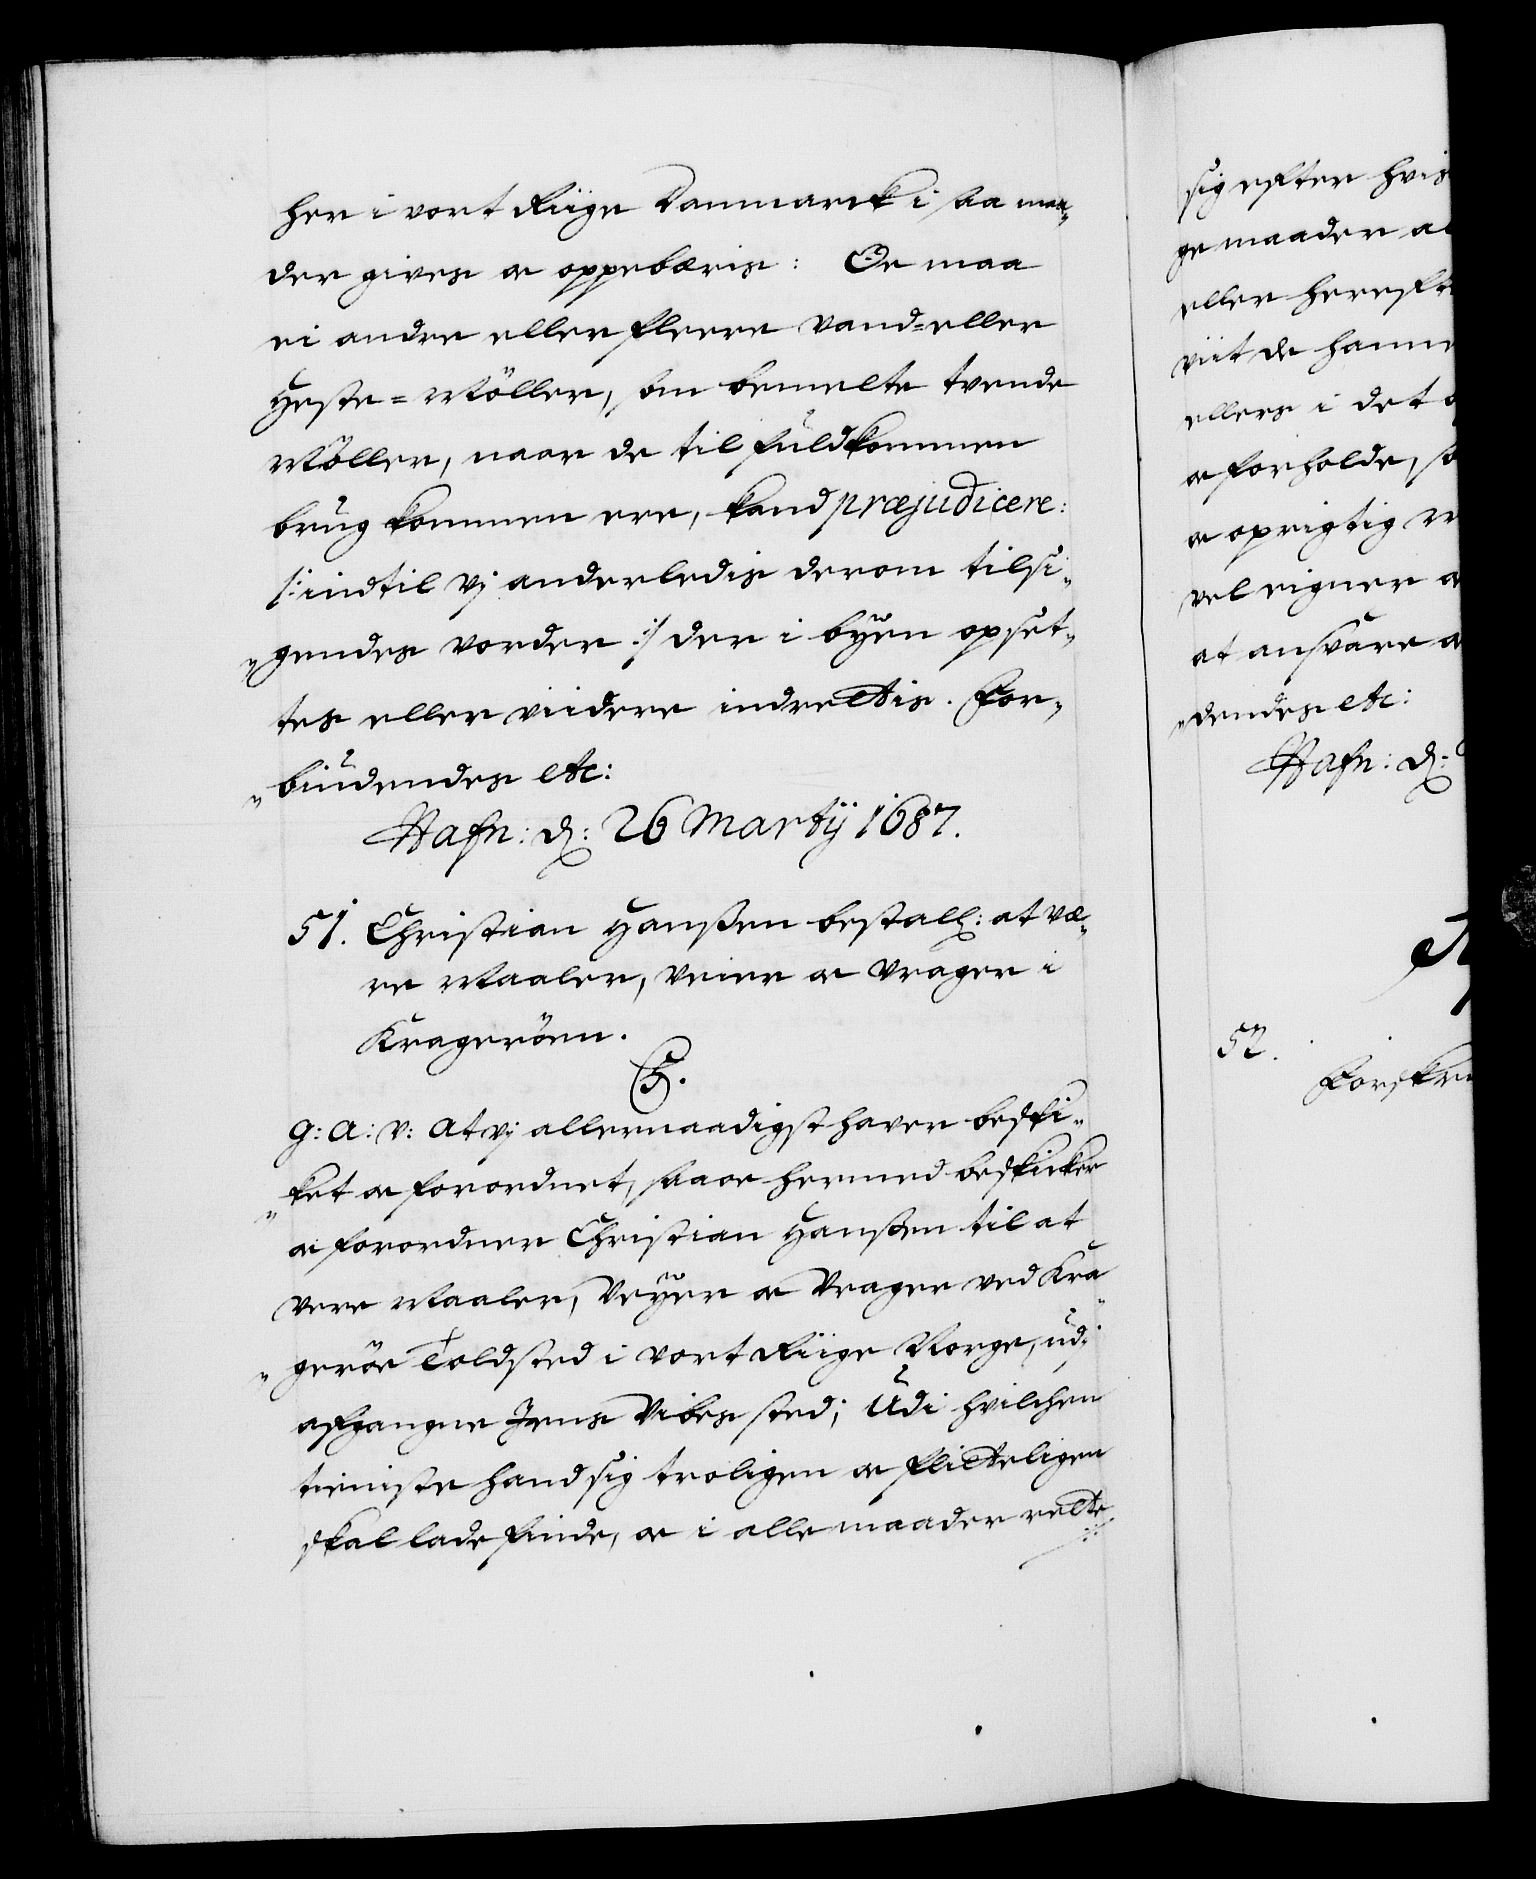 her i vort Riige Danmarck i saa maa„
der gives oc oppebæris: Oc maa
ei andre eller fleere vand= eller
Heste= Möller, som bemelte tvende
Möller, naar de til fuldkommen
brug kommen ere, kand præjudicere:
/: indtil vj anderledis derom tilsi„
„gendes vorder :/ der i byen opset„
tes eller viidere indrettis. For„
„biudendes etc:
Hafn: d: 26 Martij 1687.
51. Christian Hanßen bestall: at væ„
re Maaler, Veier oc Vrager i
Kragerøen.
C5.
G: A: V: At vj allernaadigst haver beski„
„ket oc forordnet, saa oc hermed beskicker
oc forordner Christian Hanßen til at
vere Maaler, Veÿer oc Vrager ved Kra„
„geröe Toldsted i vort Riige Norge, udi
afgangne Jens Vibes sted; Udi hvilchen
tieniste hand sig troligen oc flitteligen
skal lade finde, oc i alle maader rette
sig efter hvis
ge maader
eller herefte
viit de hanne
ellers i det
oc forholde, so
oc oprigtig
vel eigner
at ansvare
„dendes etc:
Hafn: d:
52.
Forskre